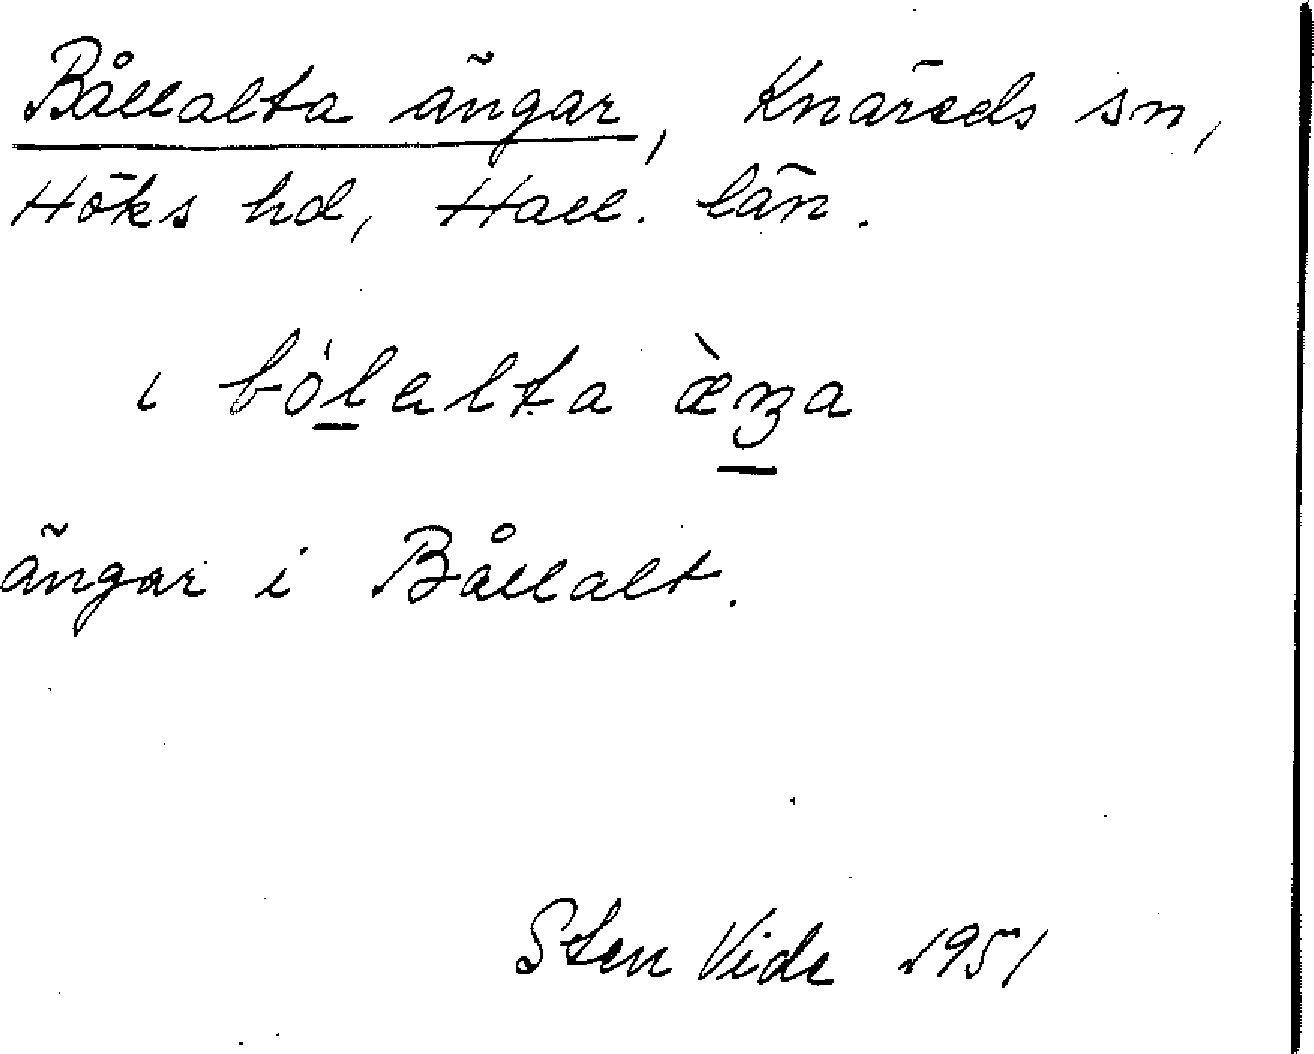 Bållalta ängar, Knäreds sn,
Höks hd, Hall. län.
ı bólalta æ̀ŋa
ängar i Bållalt.
Sten Vide 1951